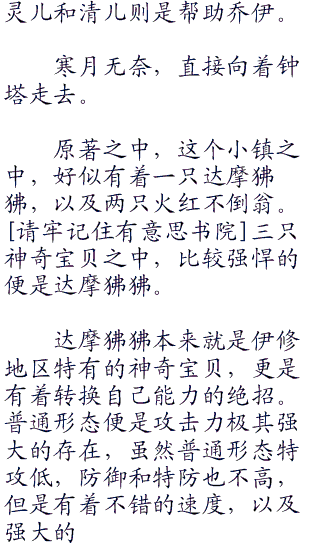 灵儿和清儿则是帮助乔伊。
寒月无奈，直接向着钟
塔走去。
原著之中，这个小镇之
中，好似有着一只达摩狒
狒，以及两只火红不倒翁。
[请牢记住有意思书院]三只
神奇宝贝之中，比较强悍的
便是达摩狒狒。
达摩狒狒本来就是伊修
地区特有的神奇宝贝，更是
有着转换自己能力的绝招。
普通形态便是攻击力极其强
大的存在，虽然普通形态特
攻低，防御和特防也不高，
但是有着不错的速度，以及
强大的